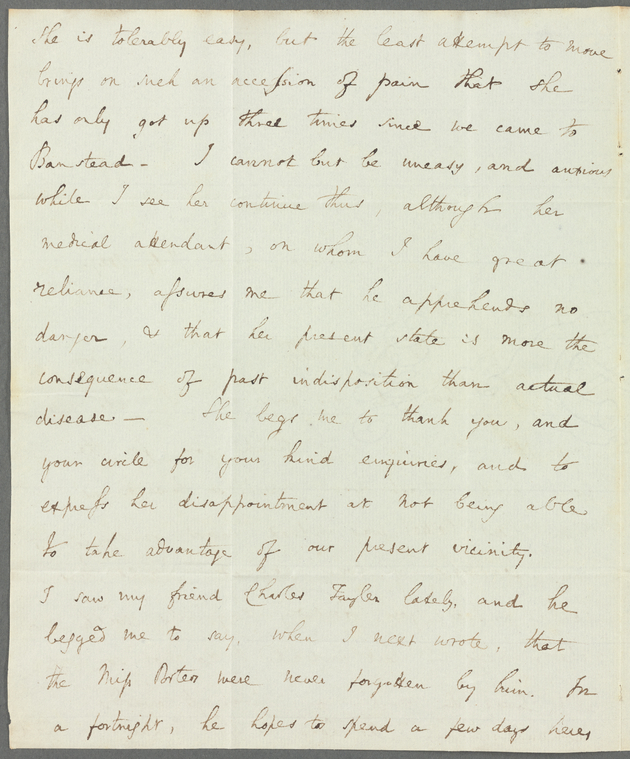 She is tolerably easy, but the least attempt to move
brings on such an accession of pain that she
has only got up three times since we came to
Banstead - I cannot but be uneasy, and anxious
while I see her continue thus, although her
medical attendant, on whom I have great
reliance, assures me that he apprehends no
danger, & that her present state is more the
consequence of past indisposition than actual
disease — She begs me to thank you, and
your circle for your kind enquiries, and to
express her disappointment at not being able
to take advantage of our present vicinity.
I saw my friend Charles Tayler lately, and he
begged me to say, when I next wrote, that
the Miss Porters were never forgotten by him. In
a fortnight, he hopes to spend a few days here,